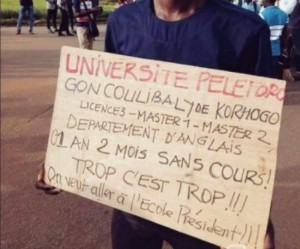 UNIVERSITE PELEFORO
GON COULIBALY DE KORHOGO
LICENCE3-MASTER1-MASTER 2
DEPARTEMENT D'ANGLAIS
01 AN 2 MOIS SANS COURS!
TROP C'EST TROP!!!
On veut aller à l'Ecole Président!!!